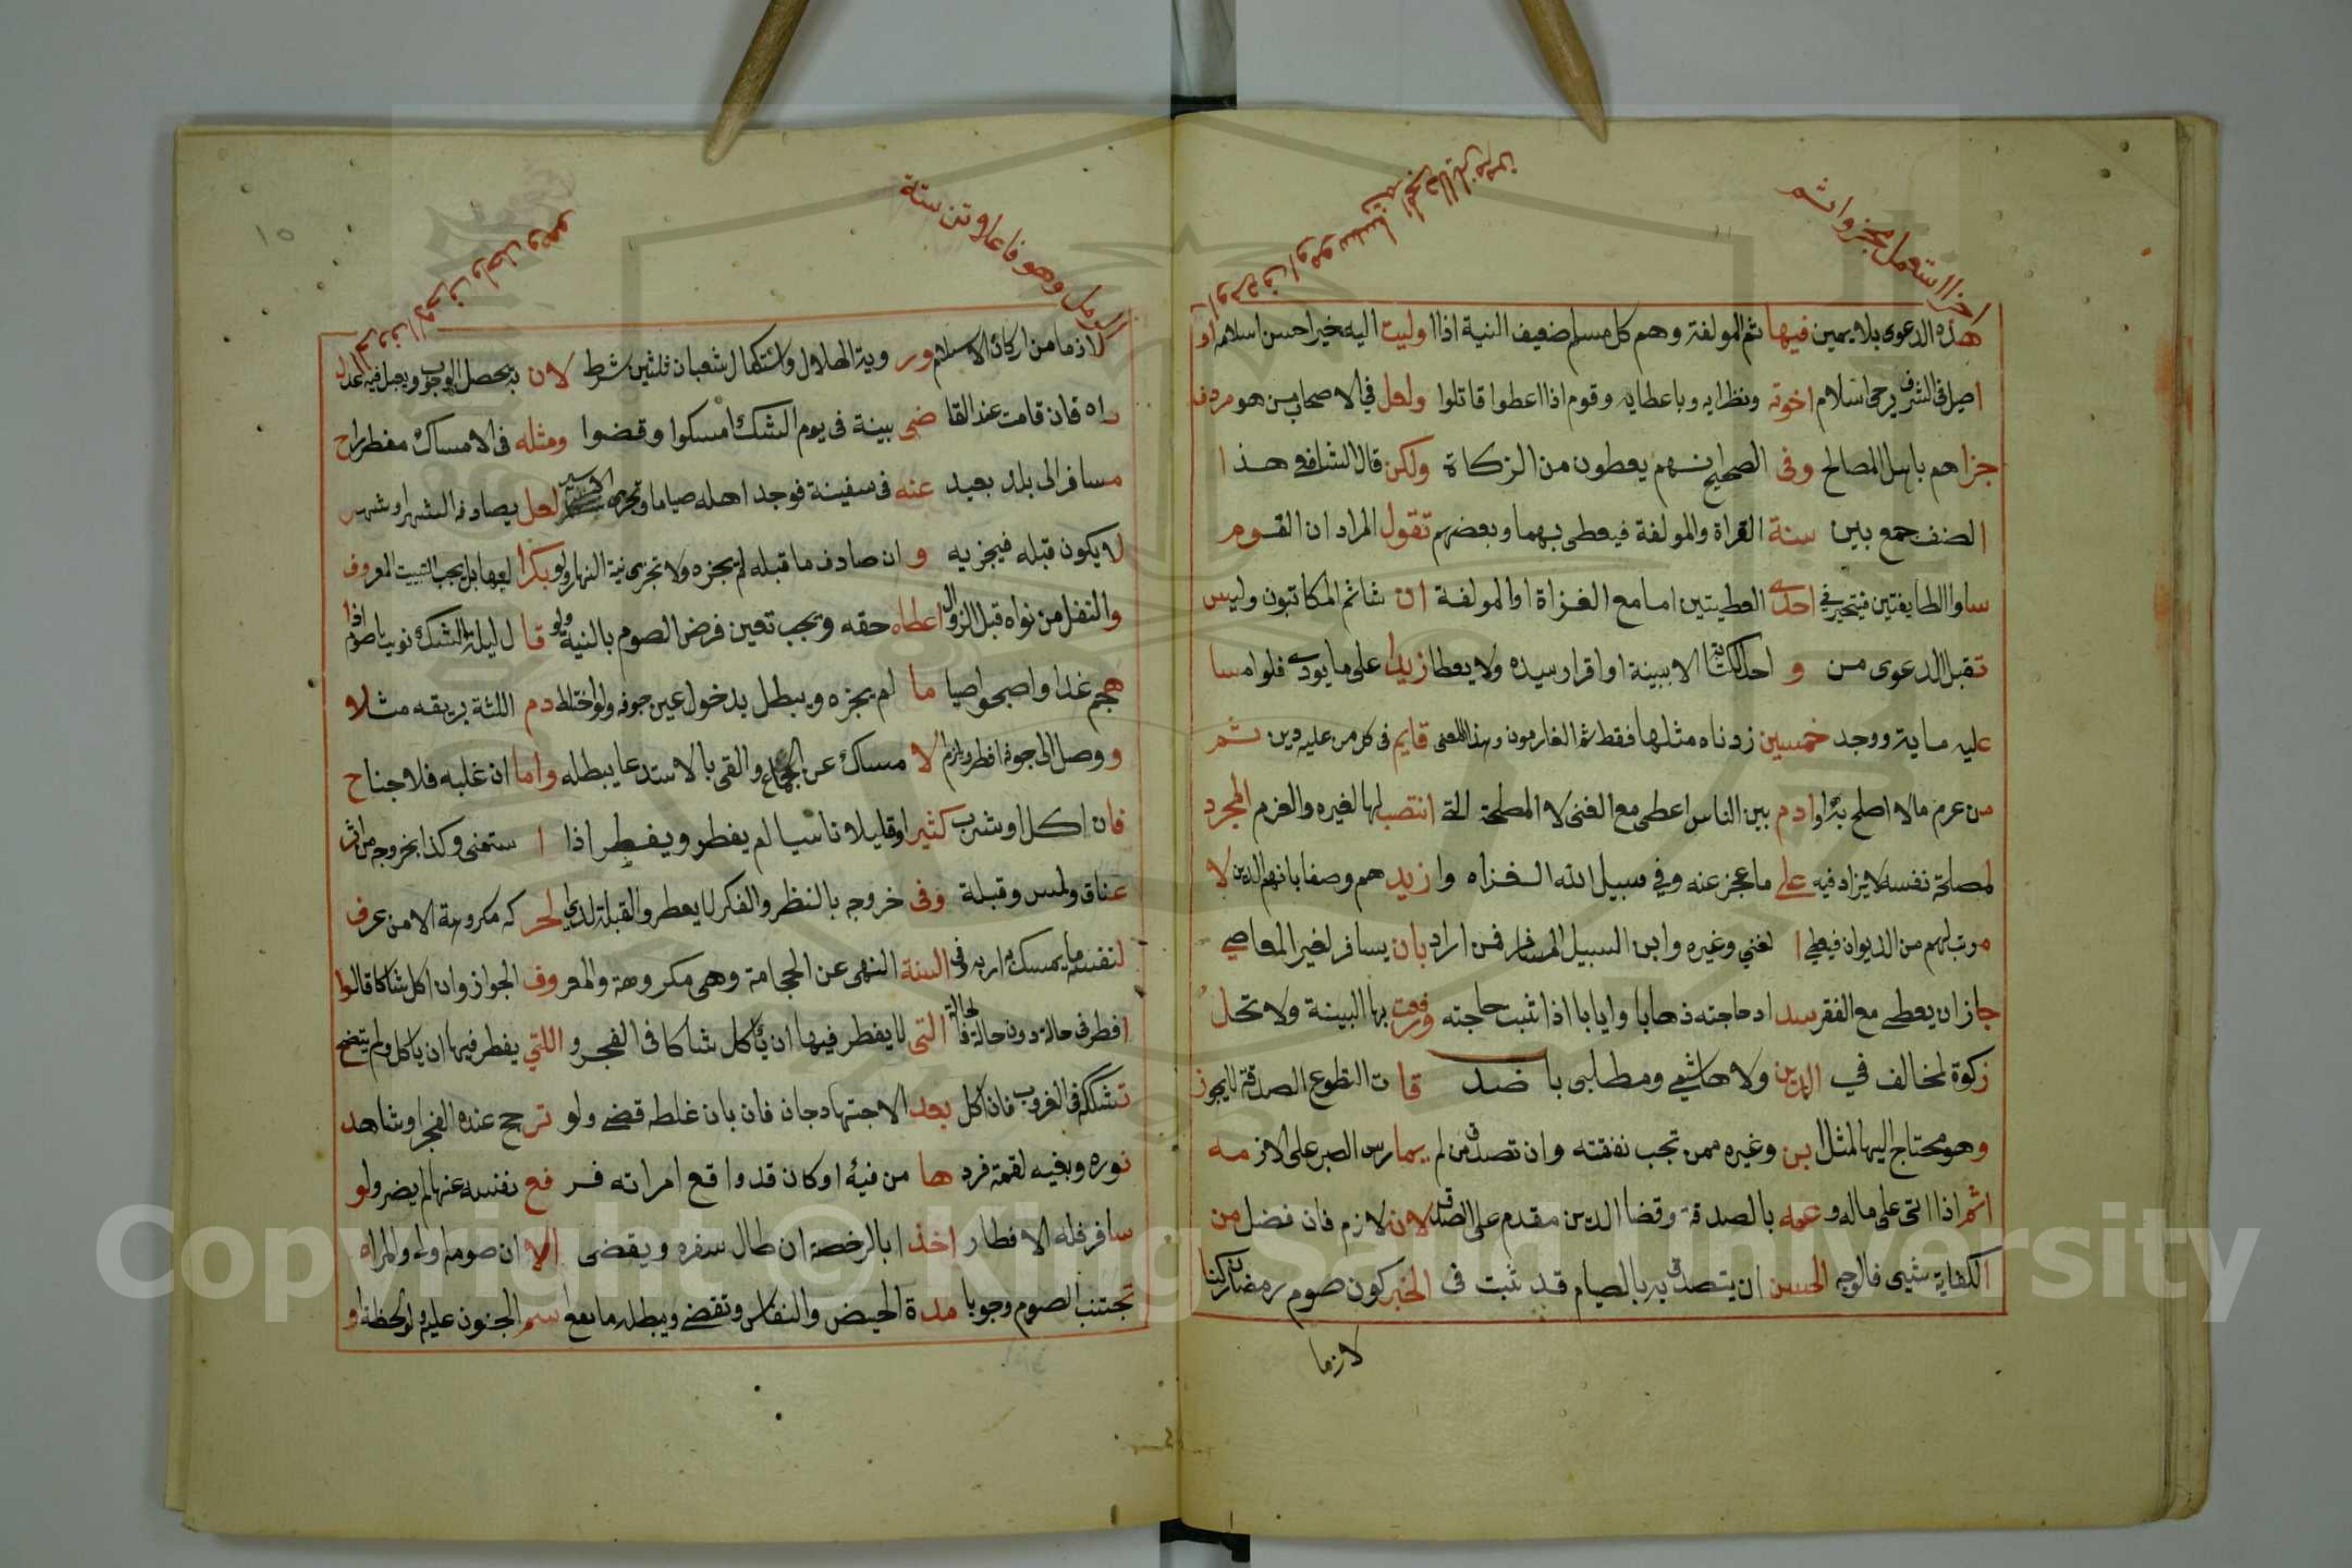 اخر استعمل مجزوا ثم
هذه الدعوى بلا يمين فيها ثم المولفة وهم كل مسلم ضعيف النية اذا اوليت اليه خير احسن اسلامه او
اصيل فى الشرف يرجى اسلام اخوته ونظرايه وباعطايه وقوم اذا اعطوا قاتلوا ولعل في الاصحاب من هو مردف
جزاهم باهل المصالح وفى الصحيح انهم يعطون من الزكاة ولكن قال الشافعي هذا
الصنف جمع بين سنة القراة والمولفة فيعطى بهما وبعضهم تقول المراد ان القوم
ساوا الطايفتين فيتخير في احدى العطيتين اما مع الغزاة او المولفة ان شا ثم المكاتبون وليس
تقبل الدعوى من و احد الكتابة الا ببينة او اقرار سيده ولا يعطا زيدا على ما يودى فلو امسا
عليه ماية ووجد خمسين زدناه مثلها فقط ثم الغارمون وهذا المعنى قايم فى كل من عليه دين ثم
من غرم مالا اصلح به اوادم بين الناس اعطى مع الغنى لا المصلحة التي انتصب لها لغيره والغرم المجرد
لمصلحة نفسه لا يزاد فيه على ما عجز عنه وفي سبيل الله الغزاه وازيدهم وصفا بانهم الذين لا
مرتب لهم من الديوان فيعطي ا لغني وغيره وابن السبيل المسافر فمن اراد بان يسافر لغير المعاصي
جاز ان يعطى مع الفقر سداد حاجته ذهابا وايابا اذا ثبت حاجته ورفعت بها البينة ولا تحل
زكوة لمخالف في الدين ولا هاشمي ومطلبى با ضد قات التطوع الصدقة لا يجوز
وهو محتاج اليها لمثل بن وغيره ممن تجب نفقته وان تصدق من لم يمارس الصبر على الازمه
اثم اذا اتى على ماله وعمه بالصدقة وقضا الدين مقدم على الصدقة لانه لازم فان فضل من
الكفاية شيى فالوجه الحسن ان يتصدق به بالصيام قد ثبت فى الخبر كون صوم رمضان ركنا
لازما
الرمل وهو فاعلاتن ستة
لازما من اركان الاسلام وروية الهلال واستكمال شعبان ثلثين شرط لان به تحصل الوجوب ويقبل فيه العدل
راه فان قامت عند القا ضى بينة فى يوم الشك امسكوا وقضوا ومثله فى الامساك مفطر راح
مسافر الى بلد بعيد عنه فى سفينة فوجد اهله صياما وتحرى الاسير لعل يصادف الشهر او شهر
لا يكون قبله فيجزيه و ان صادف ما قبله لم يجزه ولا تجزى نية النهار ولو بكرا لها بل يجب التبييت المعروف
والنفل من نواه قبل الزوال اعطاه حقه ويجب تعين فرض الصوم بالنية ولو قا ل ليلة الشك نويت صوم اذا
هجم غدا واصبحوا صيا ما لم يجزه ويبطل بدخول عين جوفه ولو اختلط دم اللثة بريقه مثلا و
ووصل الى جوفه افطر ويلزم الا مساك عن الجماع والقى بالاستدعا يبطله واما ان غلبه فلا جناح
فان اكل او شرب كثيرا وقليلا ناسيا لم يفطر ويفطر اذا ا ستمنى وكذا بخروجه من اثر
عناق ولمس وقبلة وفى خروجه بالنظر والفكر لا يفطر والقبلة لذى لحر كه مكروهة الا من عرف
لنفسه ما يمسك به اربه وفى السنة النهى عن الحجامة وهى مكروهة والمعروف الجواز وان اكل شاكا قالوا
افطر فى حالة دون حالة فالحالة التى لا يفطر فيها ان يأكل شاكا فى الفجر و اللتي يفطر فيها ان ياكل ولم يتضح
تشككه فى الغروب فان اكل بعد الاجتهاد جاز فان بان غلطه قضى ولو ترجح عنده الفجر او شاهد
نوره وبفيه لقمة فرد ها من فيه او كان قد واقع امراته فر فع نفسه عنها لم يضر ولو
سافر فله الافطار اخذ ا بالرخصة ان طال سفره ويقضى الا ان صومه اولى والمراه
تجتنب الصوم وجوبا مدة الحيض والنفاس وتقضى ويبطله ما يقع اسم الجنون عليه ولو لحظة او
Copyright © King Saud University